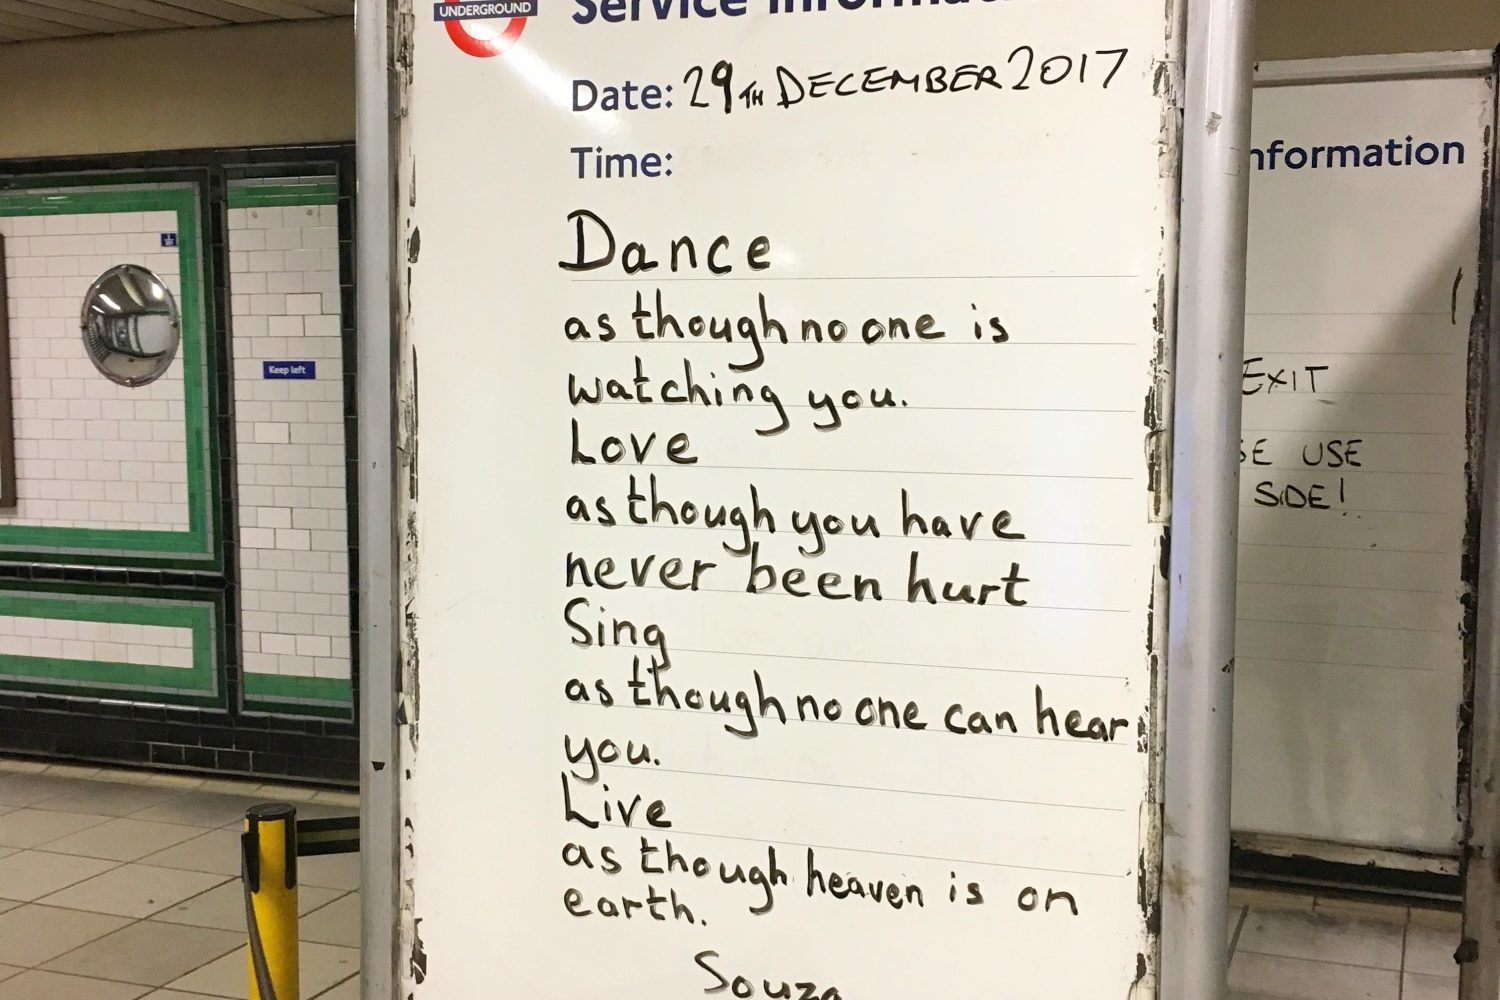 UNDERGROUND
Service Information
Date: 29TH DECEMBER 2017
Time:
Dance
as though no one is
watching you.
Love
as though you have
never been hurt
Sing
as though no one can hear
you.
Live
as though heaven is on
earth.
Souza
Keep left
nformation
EXIT
SE USE
SIDE!